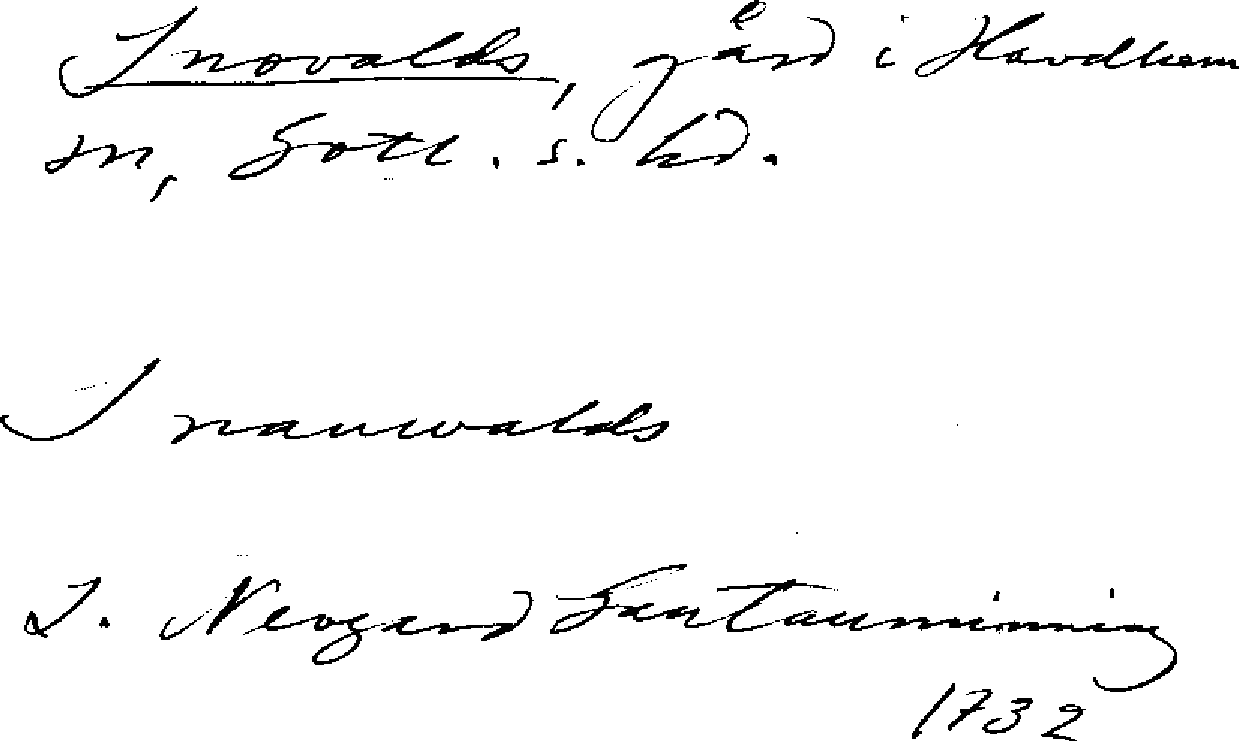 Snovalds, gård i Havdhem
sn, Gotl. s. hd.
Snauwalds
J. Neogard Gautauminning
1732